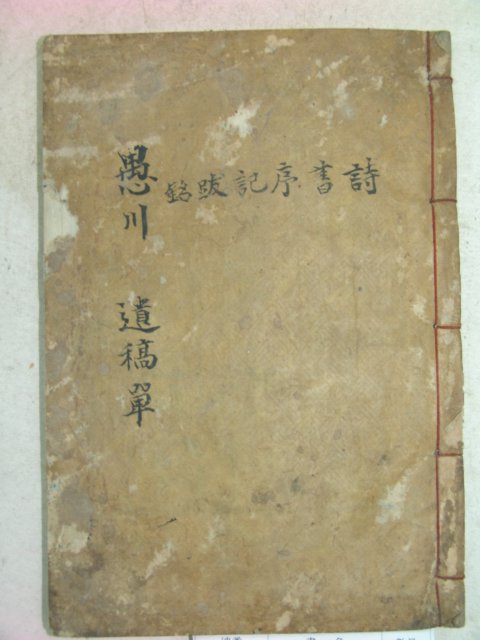 詩書序記跋銘
愚川 遺稿 單